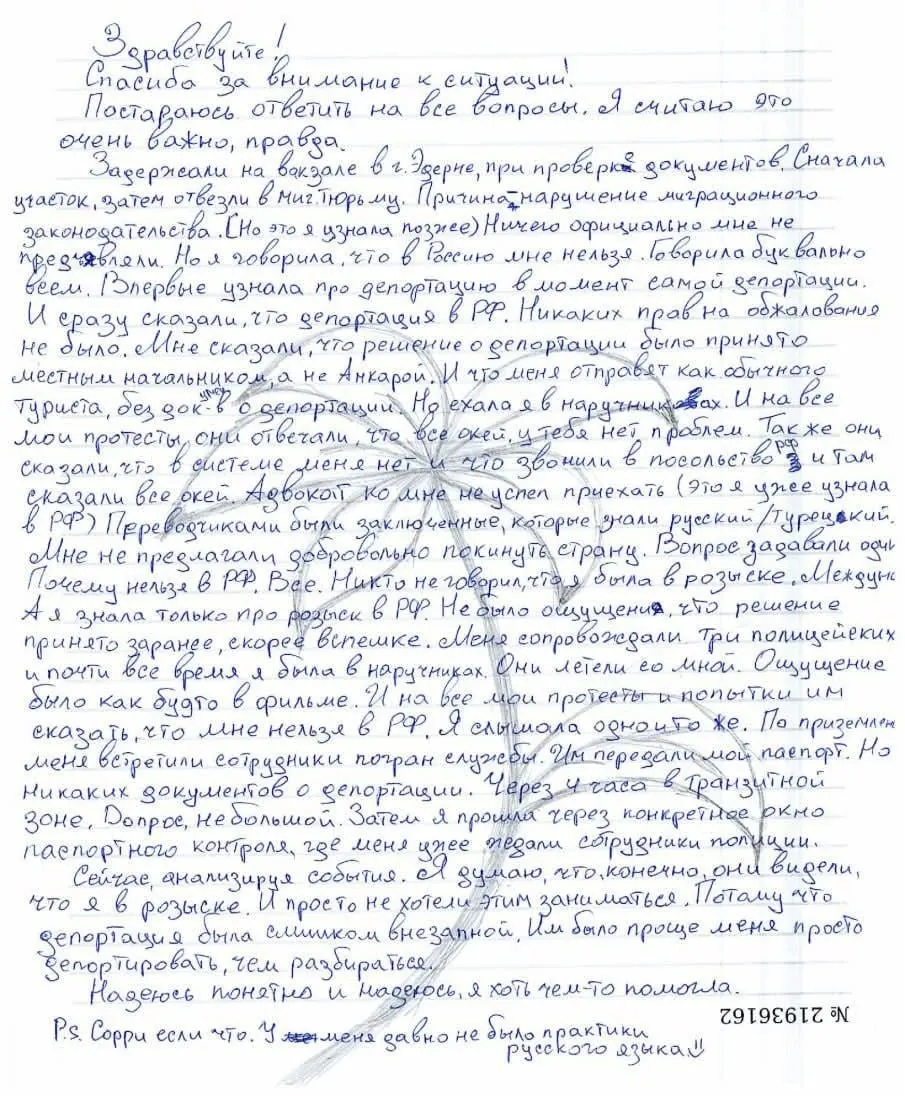 Здравствуйте!
Спасиба за внимание к ситуации!
Постараюсь ответить на все вопросы. Я считаю это
очень важно, правда.
Задержали на вакзале в г. Эдерне, при проверке документов. Сначала
участок, затем отвезли в миг. тюрьму. Причина - нарушение миграционного
законодательства. (Но это я узнала позже) Ничего официально мне не
предъявляли. Но я говорила, что в Россию мне нельзя. Говорила буквально
всем. Впервые узнала про депортацию в момент самой депортации.
И сразу сказали, что депортация в РФ. Никаких прав на обжалования
не было. Мне сказали, что решение о депортации было принято
местным начальником, а не Анкарой. И что меня отправят как обычного
туриста, без док-в о депортации. Но ехала я в наручниках. И на все
мои протесты, они отвечали, что все окей, у тебя нет проблем. Также они
сказали, что в системе меня нет и что звонили в посольство РФ и там
сказали все окей. Адвокат ко мне не успел приехать (это я уже узнала
в РФ) Переводчиками были заключенные, которые знали русский/турецкий.
Мне не предлагали добровольно покинуть страну. Вопрос задавали оди
Почему нельзя в РФ. Все. Никто не говорил, что я была в розыске. Междун
А я знала только про розыск в РФ. Не было ощущения, что решение
принято заранее, скорее в спешке. Меня сопровождали три полицейских
и почти все время я была в наручниках. Они летели со мной. Ощущение
было как будто в фильме. И на все мои протесты и попытки им
сказать, что мне нельзя в РФ. Я слышала одно и то же. По приземлен
меня встретили сотрудники погран службы. Им передали мой паспорт. Но
никаких документов о депортации. Через 4 часа в транзитной
зоне. Допрос, небольшой. Затем я прошла через конкретное окно
паспортного контроля, где меня уже ждали сотрудники полиции.
Сейчас, анализируя события. Я думаю, что, конечно, они видели,
что я в розыске. И просто не хотели этим заниматься. Потаму что
депортация была слишком внезапной. Им было проще меня просто
депортировать, чем разбираться.
Надеюсь понятно и надеюсь, я хоть чем-то помогла.
№ 21936162
P.s. Сорри если что. У меня давно не было практики
русского языка☺